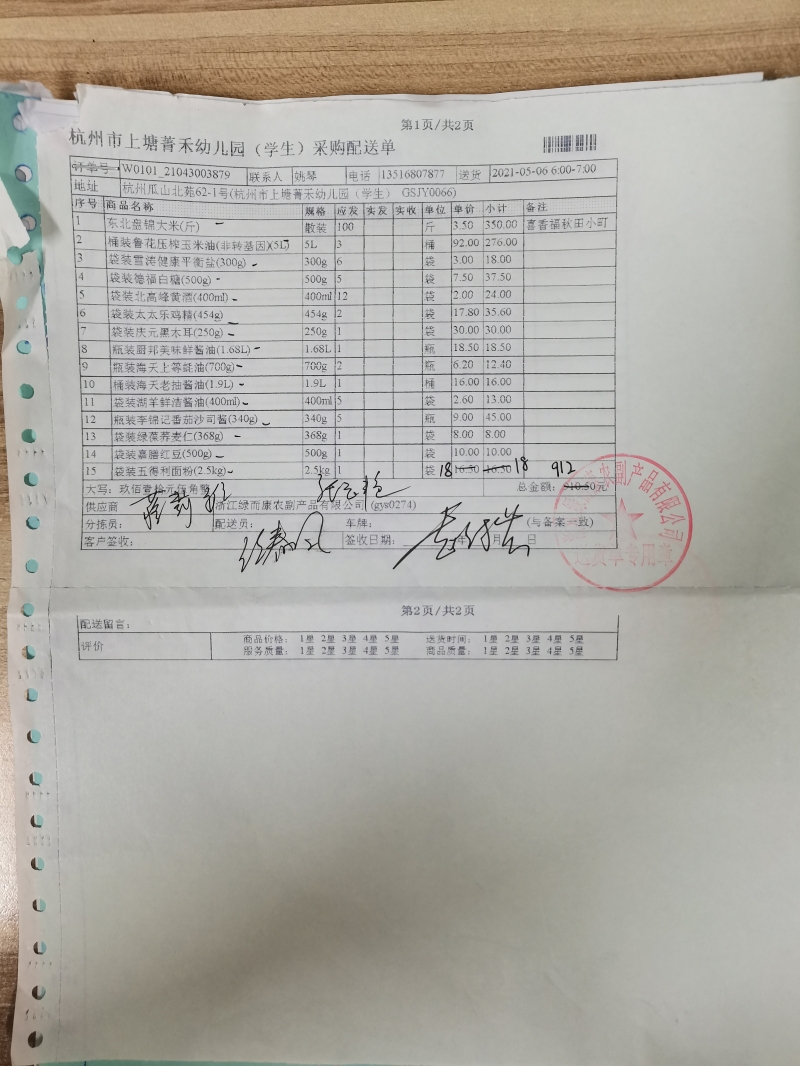 第1页/共2页
杭州市上塘菁禾幼儿园（学生）采购配送单
订单号 W0101_21043003879 联系人 姚琴 电话 13516807877 送货 2021-05-06 6:00-7:00
地址 杭州瓜山北苑62-1号(杭州市上塘菁禾幼儿园（学生） GSJY0066)
序号 商品名称 规格 应发 实发 实收 单位 单价 小计 备注
1 东北盘锦大米(斤) 散装 100 斤 3.50 350.00 喜香福秋田小町
2 桶装鲁花压榨玉米油(非转基因)(5L) 5L 3 桶 92.00 276.00
3 袋装雪涛健康平衡盐(300g) 300g 6 袋 3.00 18.00
4 袋装德福白糖(500g) 500g 5 袋 7.50 37.50
5 袋装北高峰黄酒(400ml) 400ml 12 袋 2.00 24.00
6 袋装太太乐鸡精(454g) 454g 2 袋 17.80 35.60
7 袋装庆元黑木耳(250g) 250g 1 袋 30.00 30.00
8 瓶装厨邦美味鲜酱油(1.68L) 1.68L 1 瓶 18.50 18.50
9 瓶装海天上等蚝油(700g) 700g 2 瓶 6.20 12.40
10 桶装海天老抽酱油(1.9L) 1.9L 1 桶 16.00 16.00
11 袋装湖羊鲜洁酱油(400ml) 400ml 5 袋 2.60 13.00
12 瓶装李锦记番茄沙司酱(340g) 340g 5 瓶 9.00 45.00
13 袋装绿葆荞麦仁(368g) 368g 1 袋 8.00 8.00
14 袋装嘉膳红豆(500g) 500g 1 袋 10.00 10.00
15 袋装五得利面粉(2.5kg) 2.5kg 1 袋 18 16.50 16.50 18 912
大写：玖佰壹拾元伍角整 总金额：910.50元
供应商 浙江绿而康农副产品有限公司 (gys0274)
分拣员： 配送员： 车牌： (与备案一致)
客户签收： 签收日期： 年 月 日
农副产品有限公司
专用章
第2页/共2页
配送留言：
评价 商品价格： 1星 2星 3星 4星 5星 送货时间： 1星 2星 3星 4星 5星
服务质量： 1星 2星 3星 4星 5星 商品质量： 1星 2星 3星 4星 5星